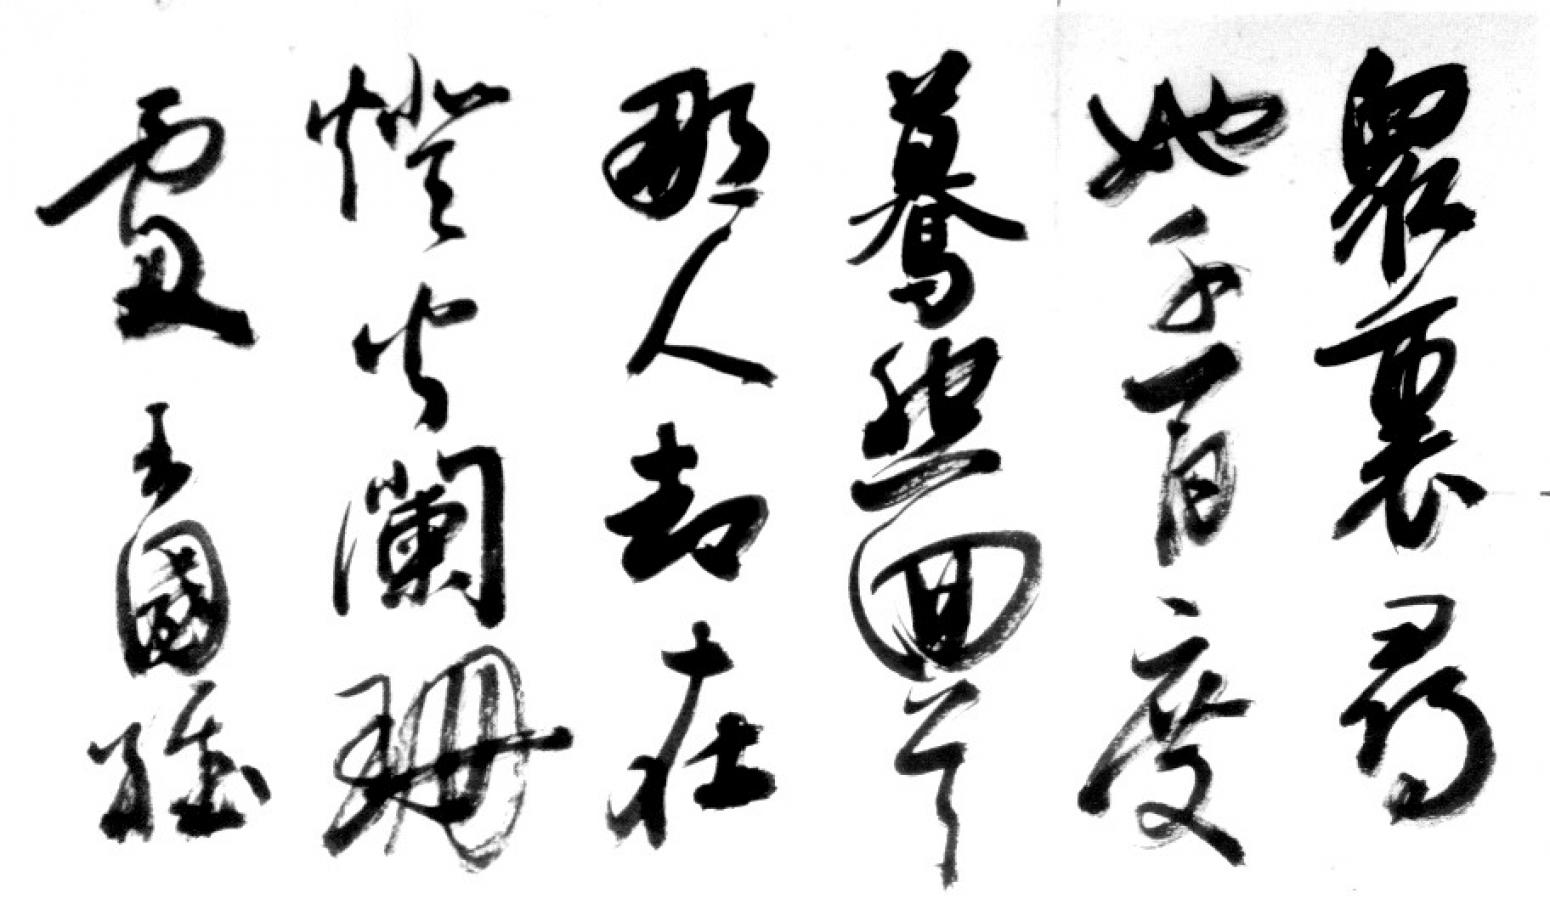 眾裏尋
她千百度
驀然回首
那人却在
燈火闌珊
處 王國維